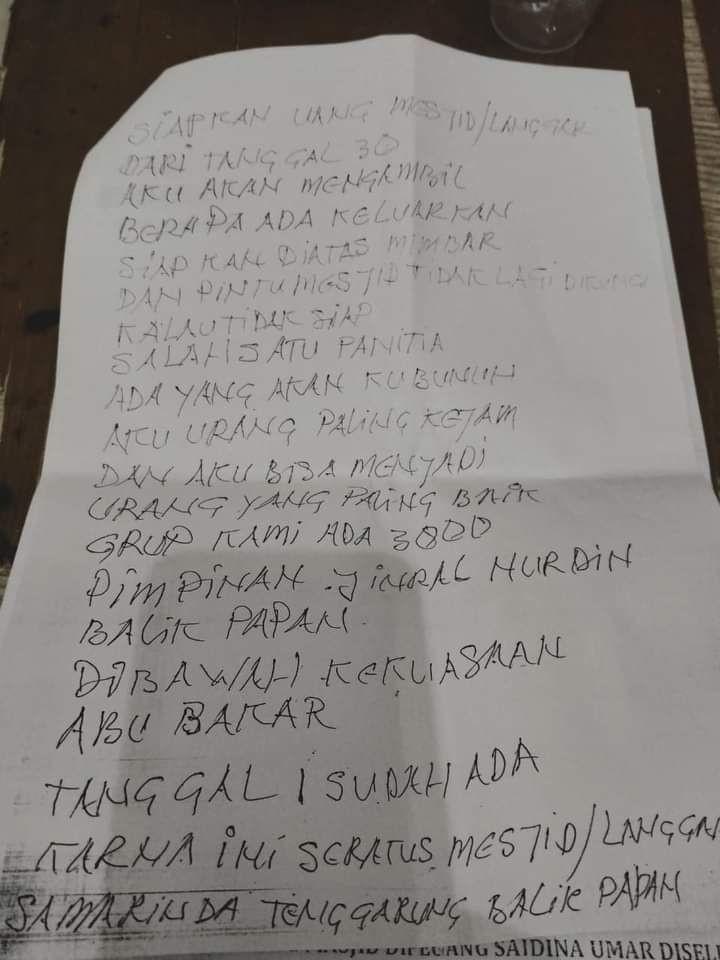 SIAPKAN UANG MESTJID/LANGGAR
DARI TANGGAL 30
AKU AKAN MENGAMBIL
BERAPA ADA KELUARKAN
SIAPKAN DIATAS MIMBAR
DAN PINTU MESTJID TIDAK LAGI DIKUNCI
KALAU TIDAK SIAP
SALAH SATU PANITIA
ADA YANG AKAN KUBUNUH
AKU URANG PALING KEJAM
DAN AKU BISA MENJADI
URANG YANG PALING BAIK
GRUP KAMI ADA 3000
PIMPINAN. JINRAL NURDIN
BALIK PAPAN.
DIBAWAH KEKUASAAN
ABU BAKAR
TANGGAL 1 SUDAH ADA
KARNA INI SERATUS MESTJID/LANGGAR
SAMARINDA TENGGARUNG BALIK PAPAN
SAIDINA UMAR